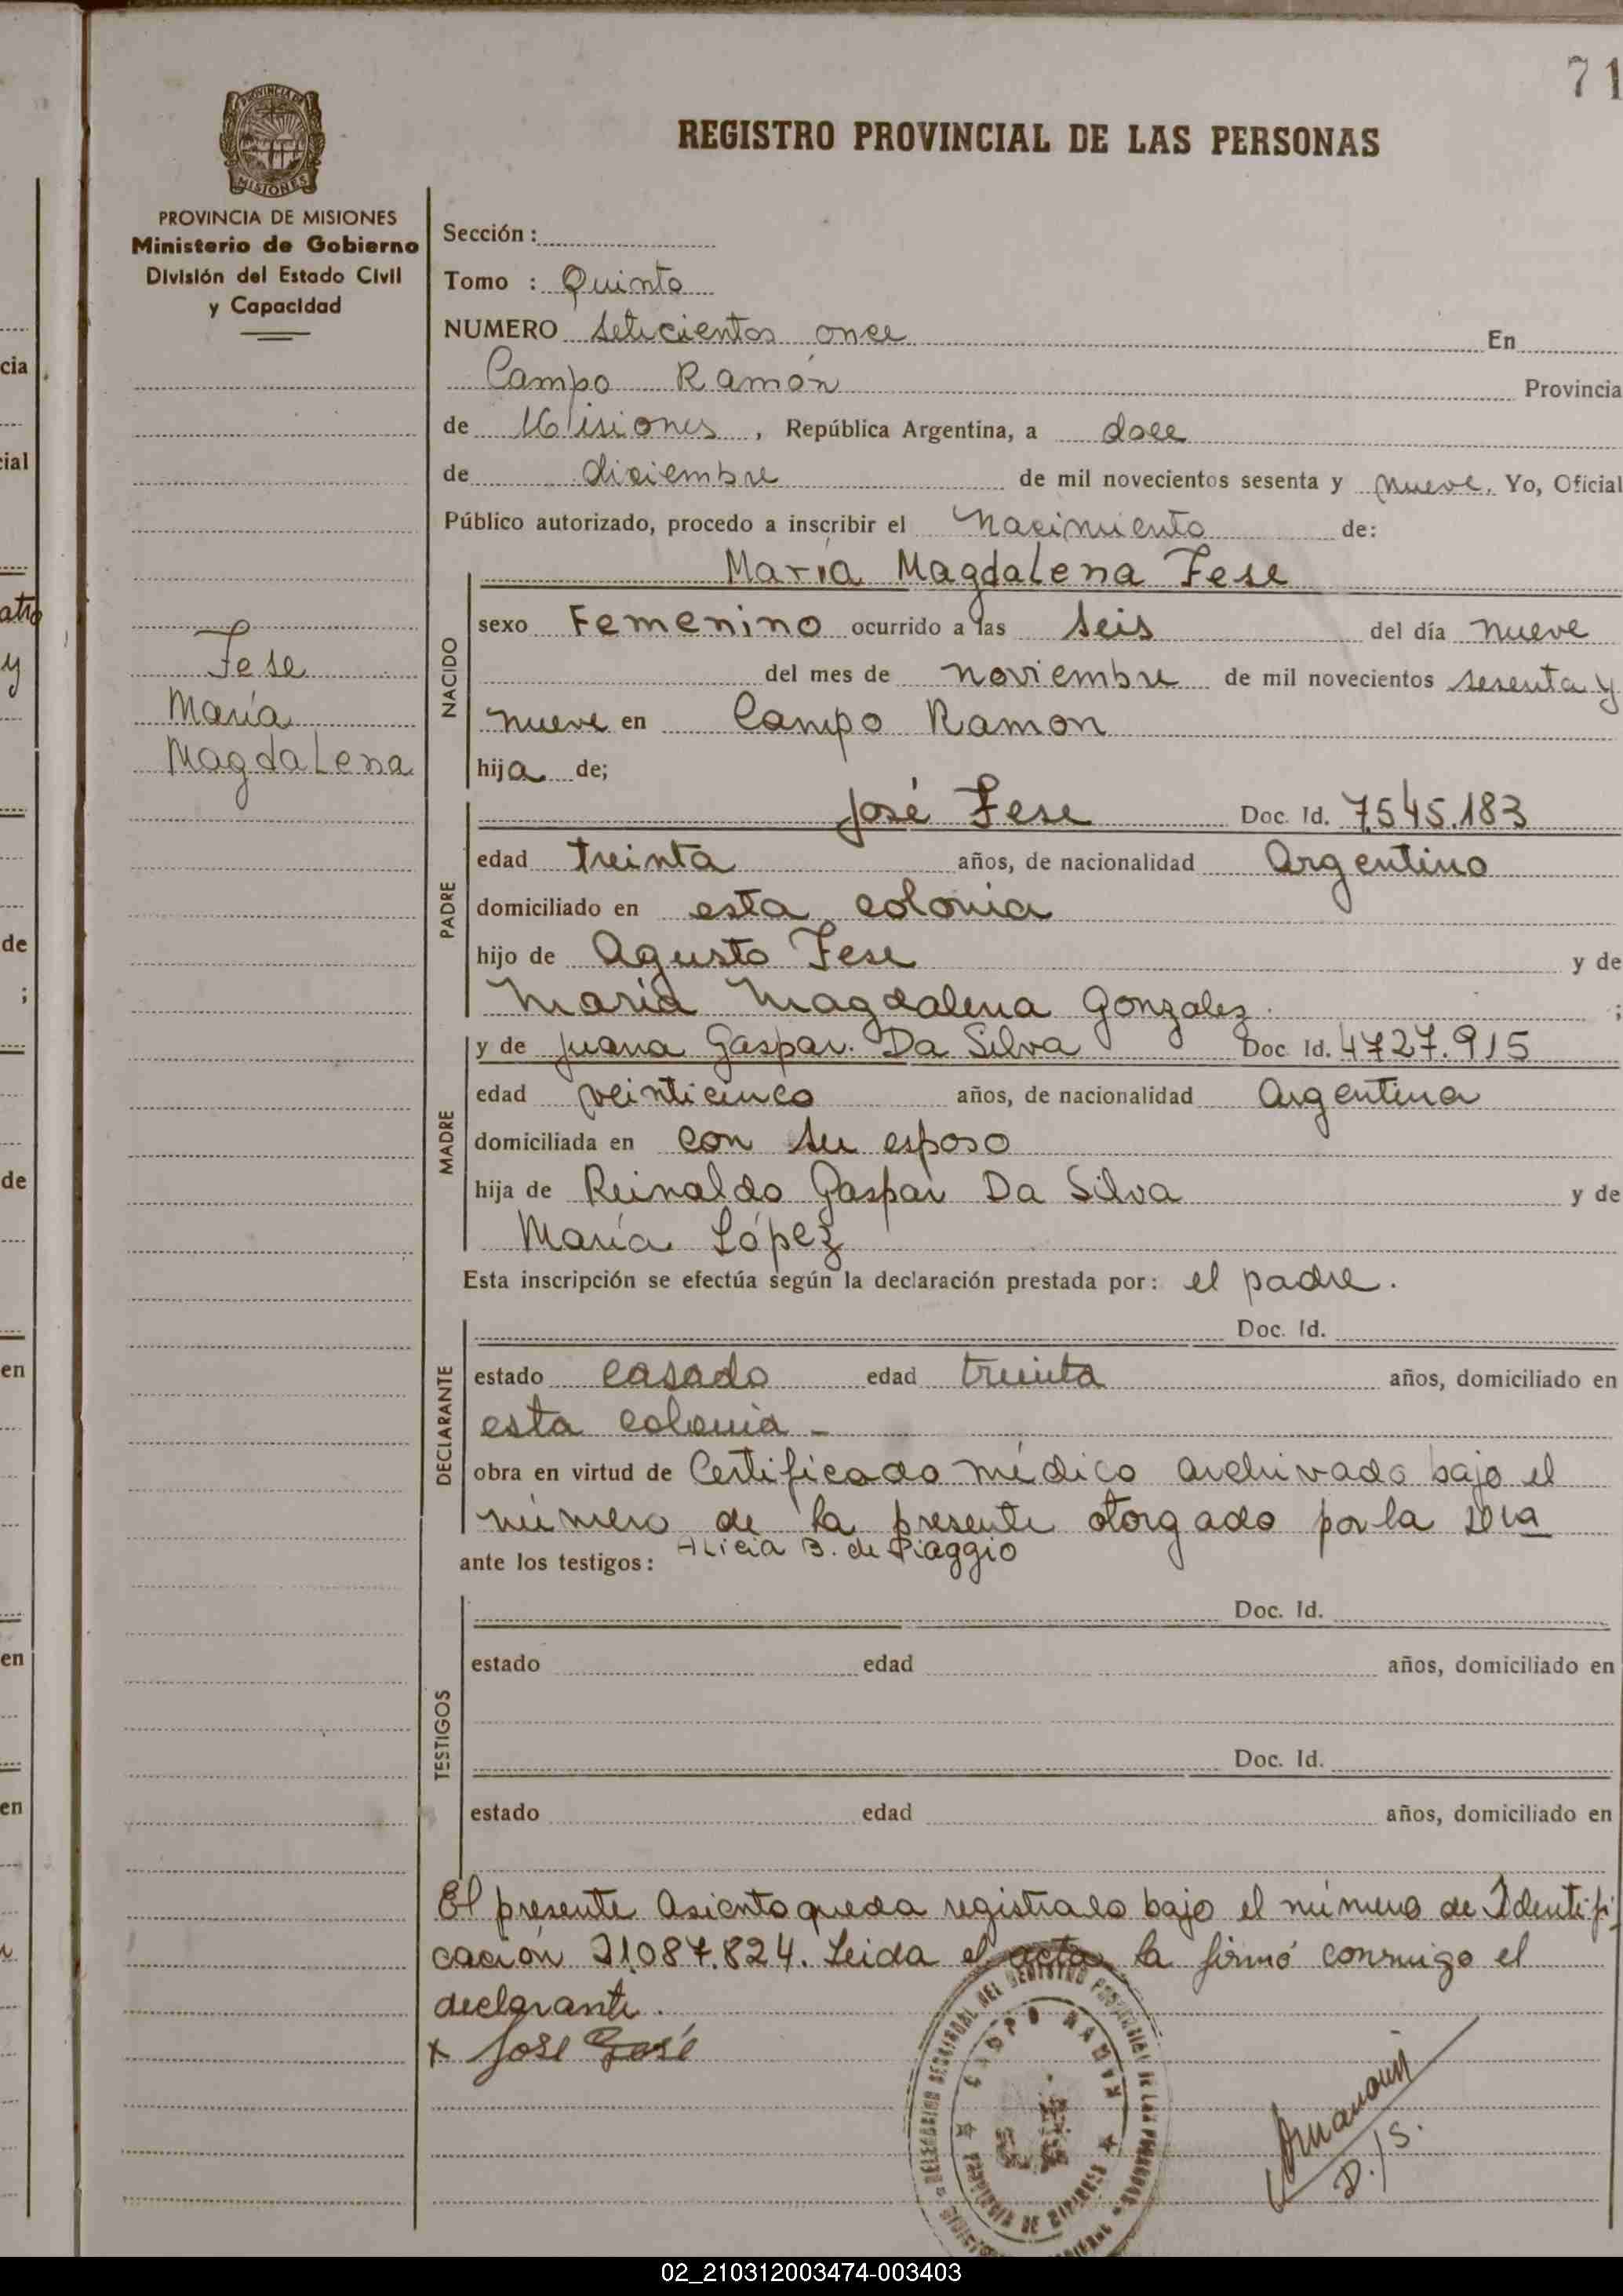 71
REGISTRO PROVINCIAL DE LAS PERSONAS
PROVINCIA DE
MISIONES
PROVINCIA DE MISIONES
Ministerio de Gobierno
División del Estado Civil
y Capacidad
Sección :
Tomo : Quinto
NUMERO Seticientos once En
Campo Ramón Provincia
de Misiones, República Argentina, a doce
de diciembre de mil novecientos sesenta y nueve. Yo, Oficial
Público autorizado, procedo a inscribir el Nacimiento de:
María Magdalena Fese
NACIDO
sexo Femenino ocurrido a las seis del día nueve
del mes de noviembre de mil novecientos sesenta y
nueve en Campo Ramon
hija de;
Fese
María
Magdalena
José Fese Doc. Id. 7.545.183
PADRE
edad treinta años, de nacionalidad Argentino
domiciliado en esta colonia
hijo de Agusto Fese y de
María Magdalena Gonzalez. ;
MADRE
y de Juana Gaspar Da Silva Doc. Id. 4727.915
edad veinticinco años, de nacionalidad Argentina
domiciliada en con su esposo
hija de Reinaldo Gaspar Da Silva y de
María López
Esta inscripción se efectúa según la declaración prestada por: el padre.
DECLARANTE
Doc. Id.
estado casado edad treinta años, domiciliado en
esta colonia -
obra en virtud de Certificado médico archivado bajo el
número de la presente otorgado por la
Alicia B. de Piaggio
ante los testigos:
TESTIGOS
Doc. Id.
estado edad años, domiciliado en
Doc. Id.
estado edad años, domiciliado en
El presente Asiento queda registrado bajo el número de Identifi
cación 21.087.824. Leida el acta la firmó conmigo el
declarante.
x José José
CAMPO RAMON
PROVINCIA DE MISIONES
D./S.
cia
cial
y
de
;
de
en
en
en
02_210312003474-003403